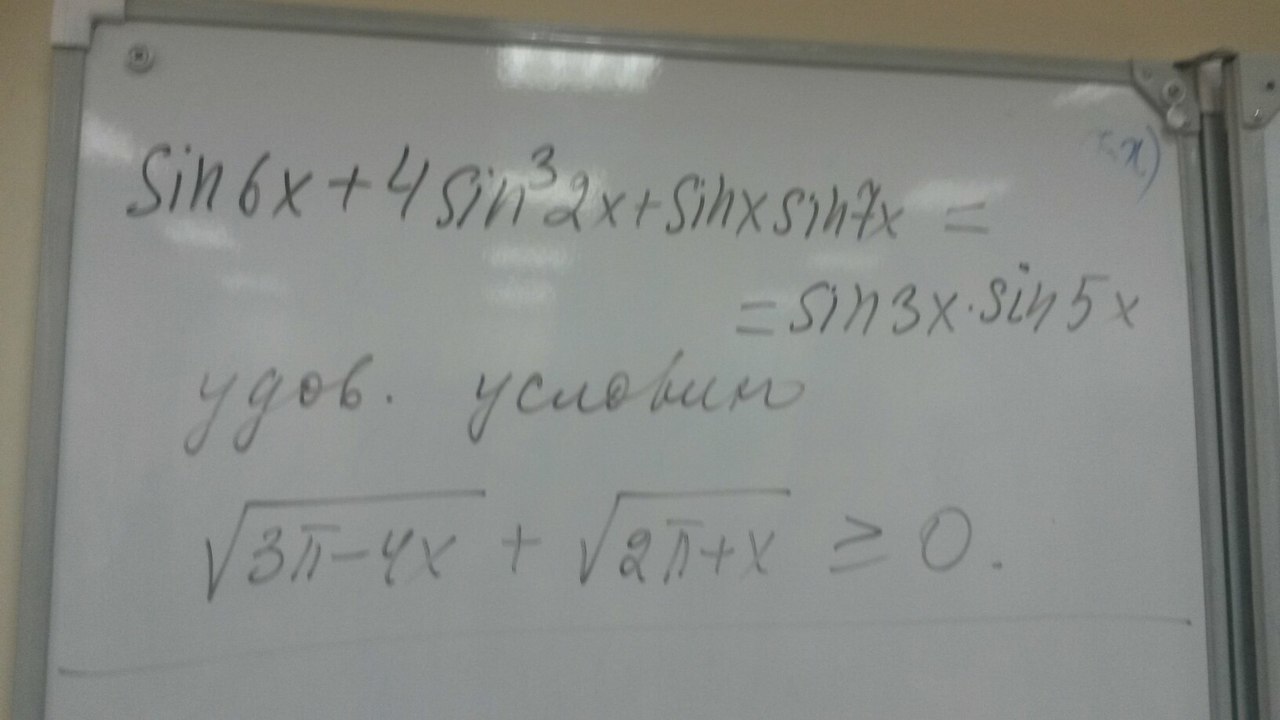 sin6x+4sin³2x+sinxsin7x =
=sin3x·sin5x
удов. условию
√(3π-4x) + √(2π+x) ≥ 0.